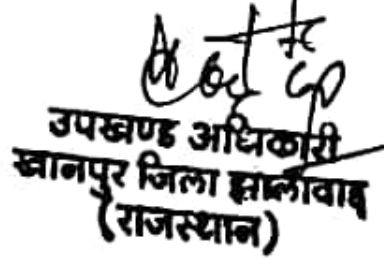 उपखण्ड अधिकारी
खानपुर जिला झालावाड
(राजस्थान)